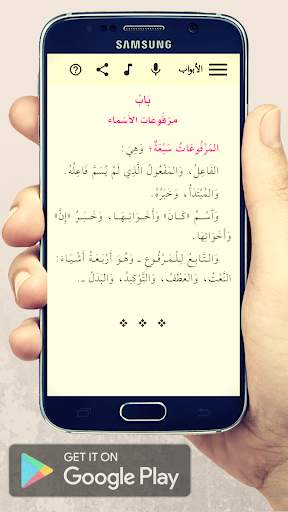 SAMSUNG
الأبواب
بَابُ
مرفوعات الأسماء
المَرْفُوعَاتُ سَبْعَةٌ؛ وَهِيَ:
الفَاعِلُ، وَالمَفْعُولُ الَّذِي لَمْ يُسَمَّ فَاعِلُهُ.
وَالمُبْتَدَأُ، وَخَبَرُهُ.
وَاسْمُ «كَانَ» وَأَخَوَاتِهَا، وَخَبَرُ «إِنَّ»
وَأَخَوَاتِهَا.
وَالتَّابِعُ لِلْمَرْفُوعِ - وَهُوَ أَرْبَعَةُ أَشْيَاءَ:
النَّعْتُ، وَالعَطْفُ، وَالتَّوْكِيدُ، وَالبَدَلُ -.
GET IT ON
Google Play